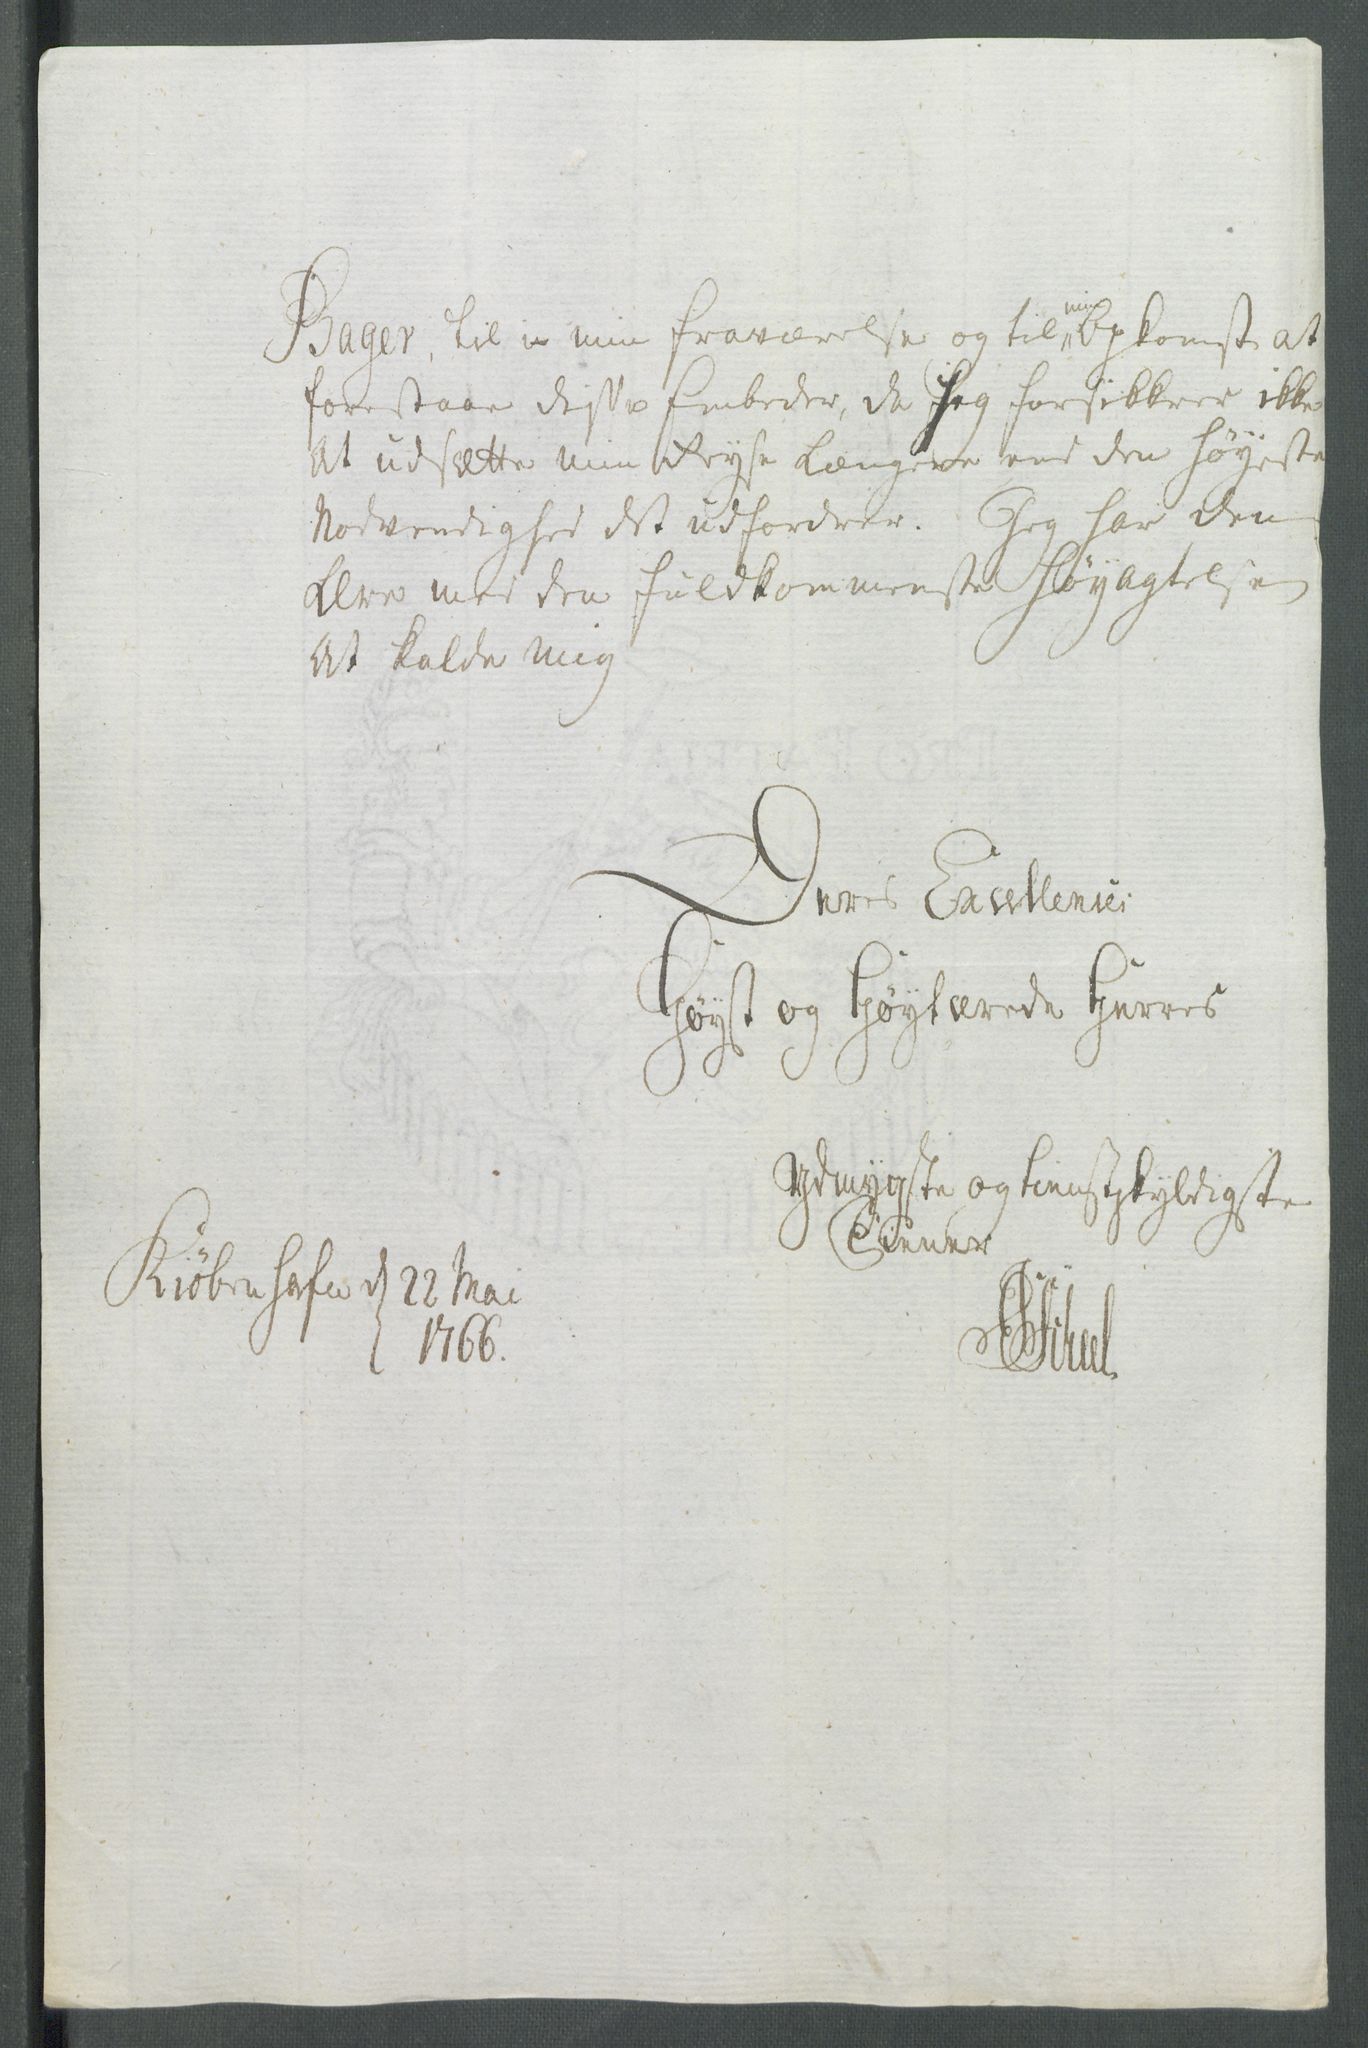 Bager, til i min fraværelse og til min Opkomst at
forestaae disse Embeder, da Jeg forsikkrer ikke
at udsætte min Reyse længere end den høyeste
Nødvendighed det udfordrer. Jeg har den
Ære med den fuldkommenste Høyagtelse
at kalde mig
Deres Excellences
Høyst og Høytærede Herres
Ydmygste og tienstskyldigste
Tiener
Kiøbenhafn d 22 Mai
1766.